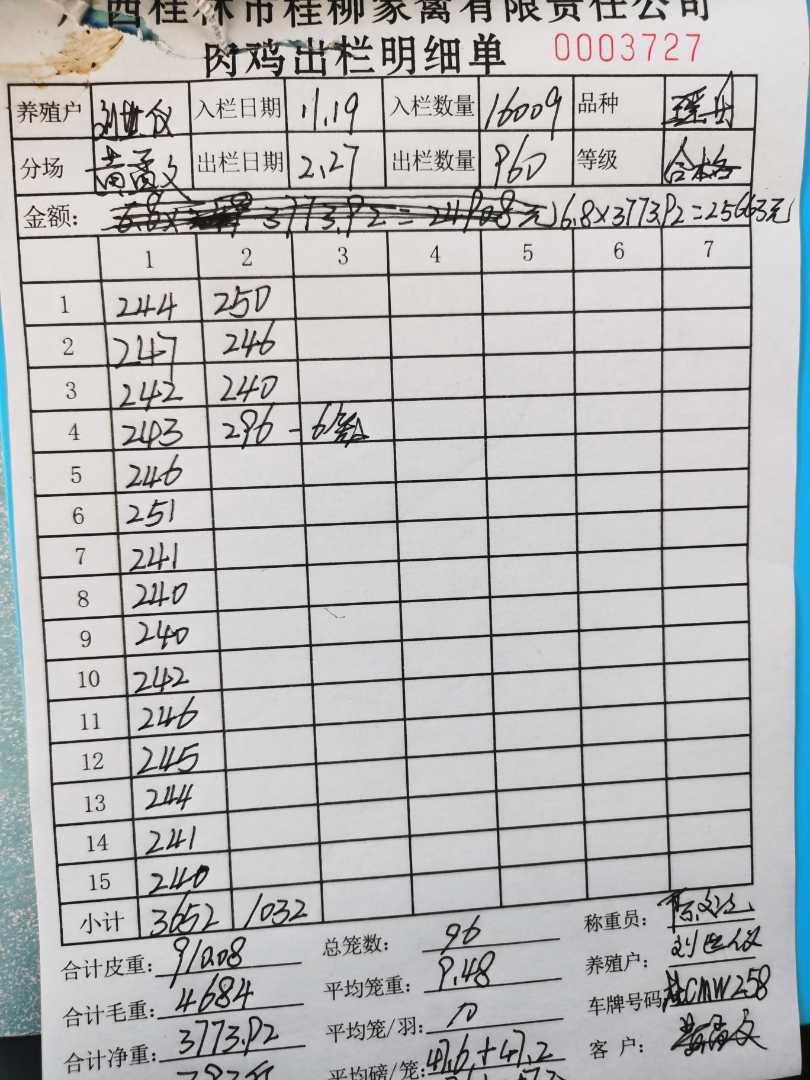 广西桂林市桂柳家禽有限责任公司
肉鸡出栏明细单 0003727
养殖户 刘世仪 入栏日期 11.19 入栏数量 16009 品种
分场 黄孟文 出栏日期 2.27 出栏数量 960 等级 合格
金额: 6.8× 3773.92=24908元 6.8×3773.92=25663元
1 2 3 4 5 6 7
1 244 250
2 247 246
3 242 240
4 243 296 - 6笼
5 246
6 251
7 241
8 240
9 240
10 242
11 246
12 245
13 244
14 241
15 240
小计 3652 1032
合计皮重: 910.08 总笼数: 96 称重员:
合计毛重: 4684 平均笼重: 9.48 养殖户: 刘世仪
合计净重: 3773.92 平均笼/羽: 10 车牌号码 桂CMW258
平均磅/笼: 47.6,+47.2 客 户: